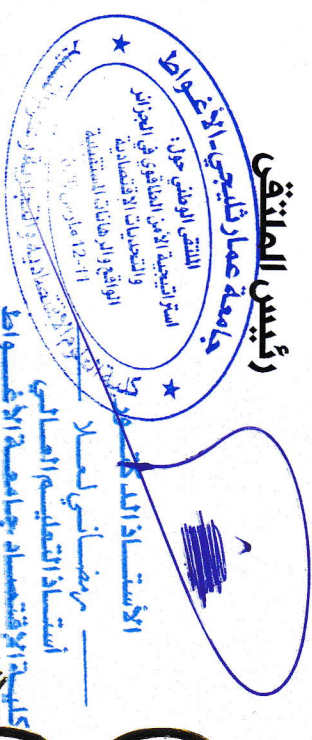 رئيس الملتقى
جامعة عمار ثليجي-الأغواط
الملتقى الوطني حول:
استراتيجية الأمن الطاقوي في الجزائر
والتحديات الاقتصادية
الواقع والرهانات المستقبلية
11-12 مارس
الأستاذ الدكتور
رمضاني لعلا
أستاذ التعليم العالي
كلية الاقتصاد جامعة الأغواط